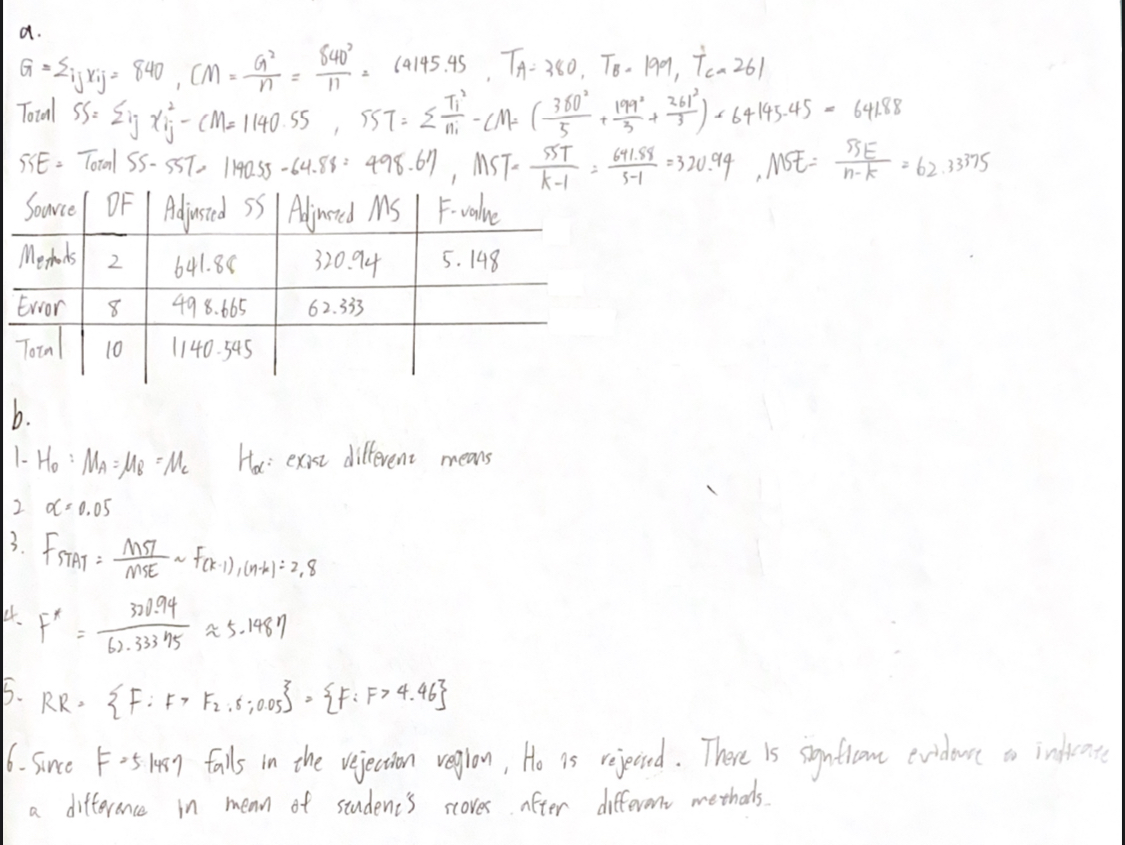 a.
G = Σij xij = 840 , CM = G²/n = 840²/11 = 64145.45 , TA = 380, TB = 199, TC = 261
Total SS = Σij x²ij - CM = 1140.55 , SST = Σ Ti²/ni - CM = (380²/5 + 199²/3 + 261²/3) - 64145.45 = 641.88
SSE = Total SS - SST = 1140.55 - 64.88 = 498.67 , MST = SST/k-1 = 641.88/3-1 = 320.94 , MSE = SSE/n-k = 62.33375
Source | DF | Adjusted SS | Adjusted MS | F-value
Methods | 2 | 641.88 | 320.94 | 5.148
Error | 8 | 498.665 | 62.333
Total | 10 | 1140.545
b.
1- H0 : MA = μB = Mc Hα: exist different means
2 α = 0.05
3. FSTAT = MST/MSE ~ F(k-1),(n-k) = 2,8
4. F* = 320.94/62.33375 ≈ 5.1487
5- RR = {F : F > F2,8;0.05} = {F : F > 4.46}
6- Since F = 5.1487 falls in the rejection region, H0 is rejected. There is significant evidence to indicate
a difference in mean of student's scores after different methods.